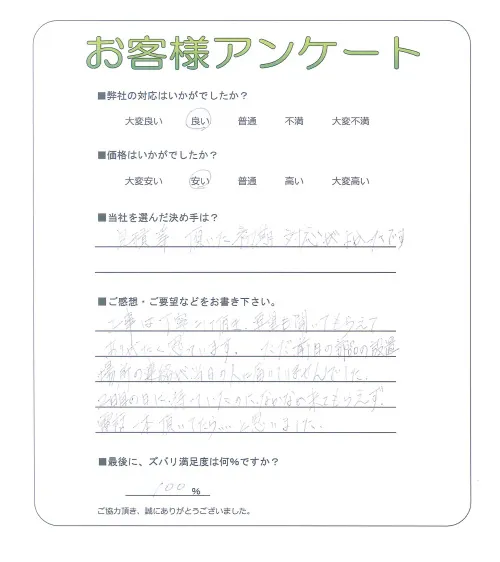 お客様アンケート
■弊社の対応はいかがでしたか？
大変良い 良い 普通 不満 大変不満
■価格はいかがでしたか？
大変安い 安い 普通 高い 大変高い
■当社を選んだ決め手は？
頂いた 対応がよかったです
■ご感想・ご要望などをお書き下さい。
工事は丁寧で を聞いてもらえて
ありがたく思っています。 ただ前日の の設置
場所の連絡が当日の人に届いていませんでした。
の日に、待っていたのに、なかなか来てもらえず、
電話一本頂いてたら… と思いました。
■最後に、ズバリ満足度は何%ですか？
100 %
ご協力頂き、誠にありがとうございました。